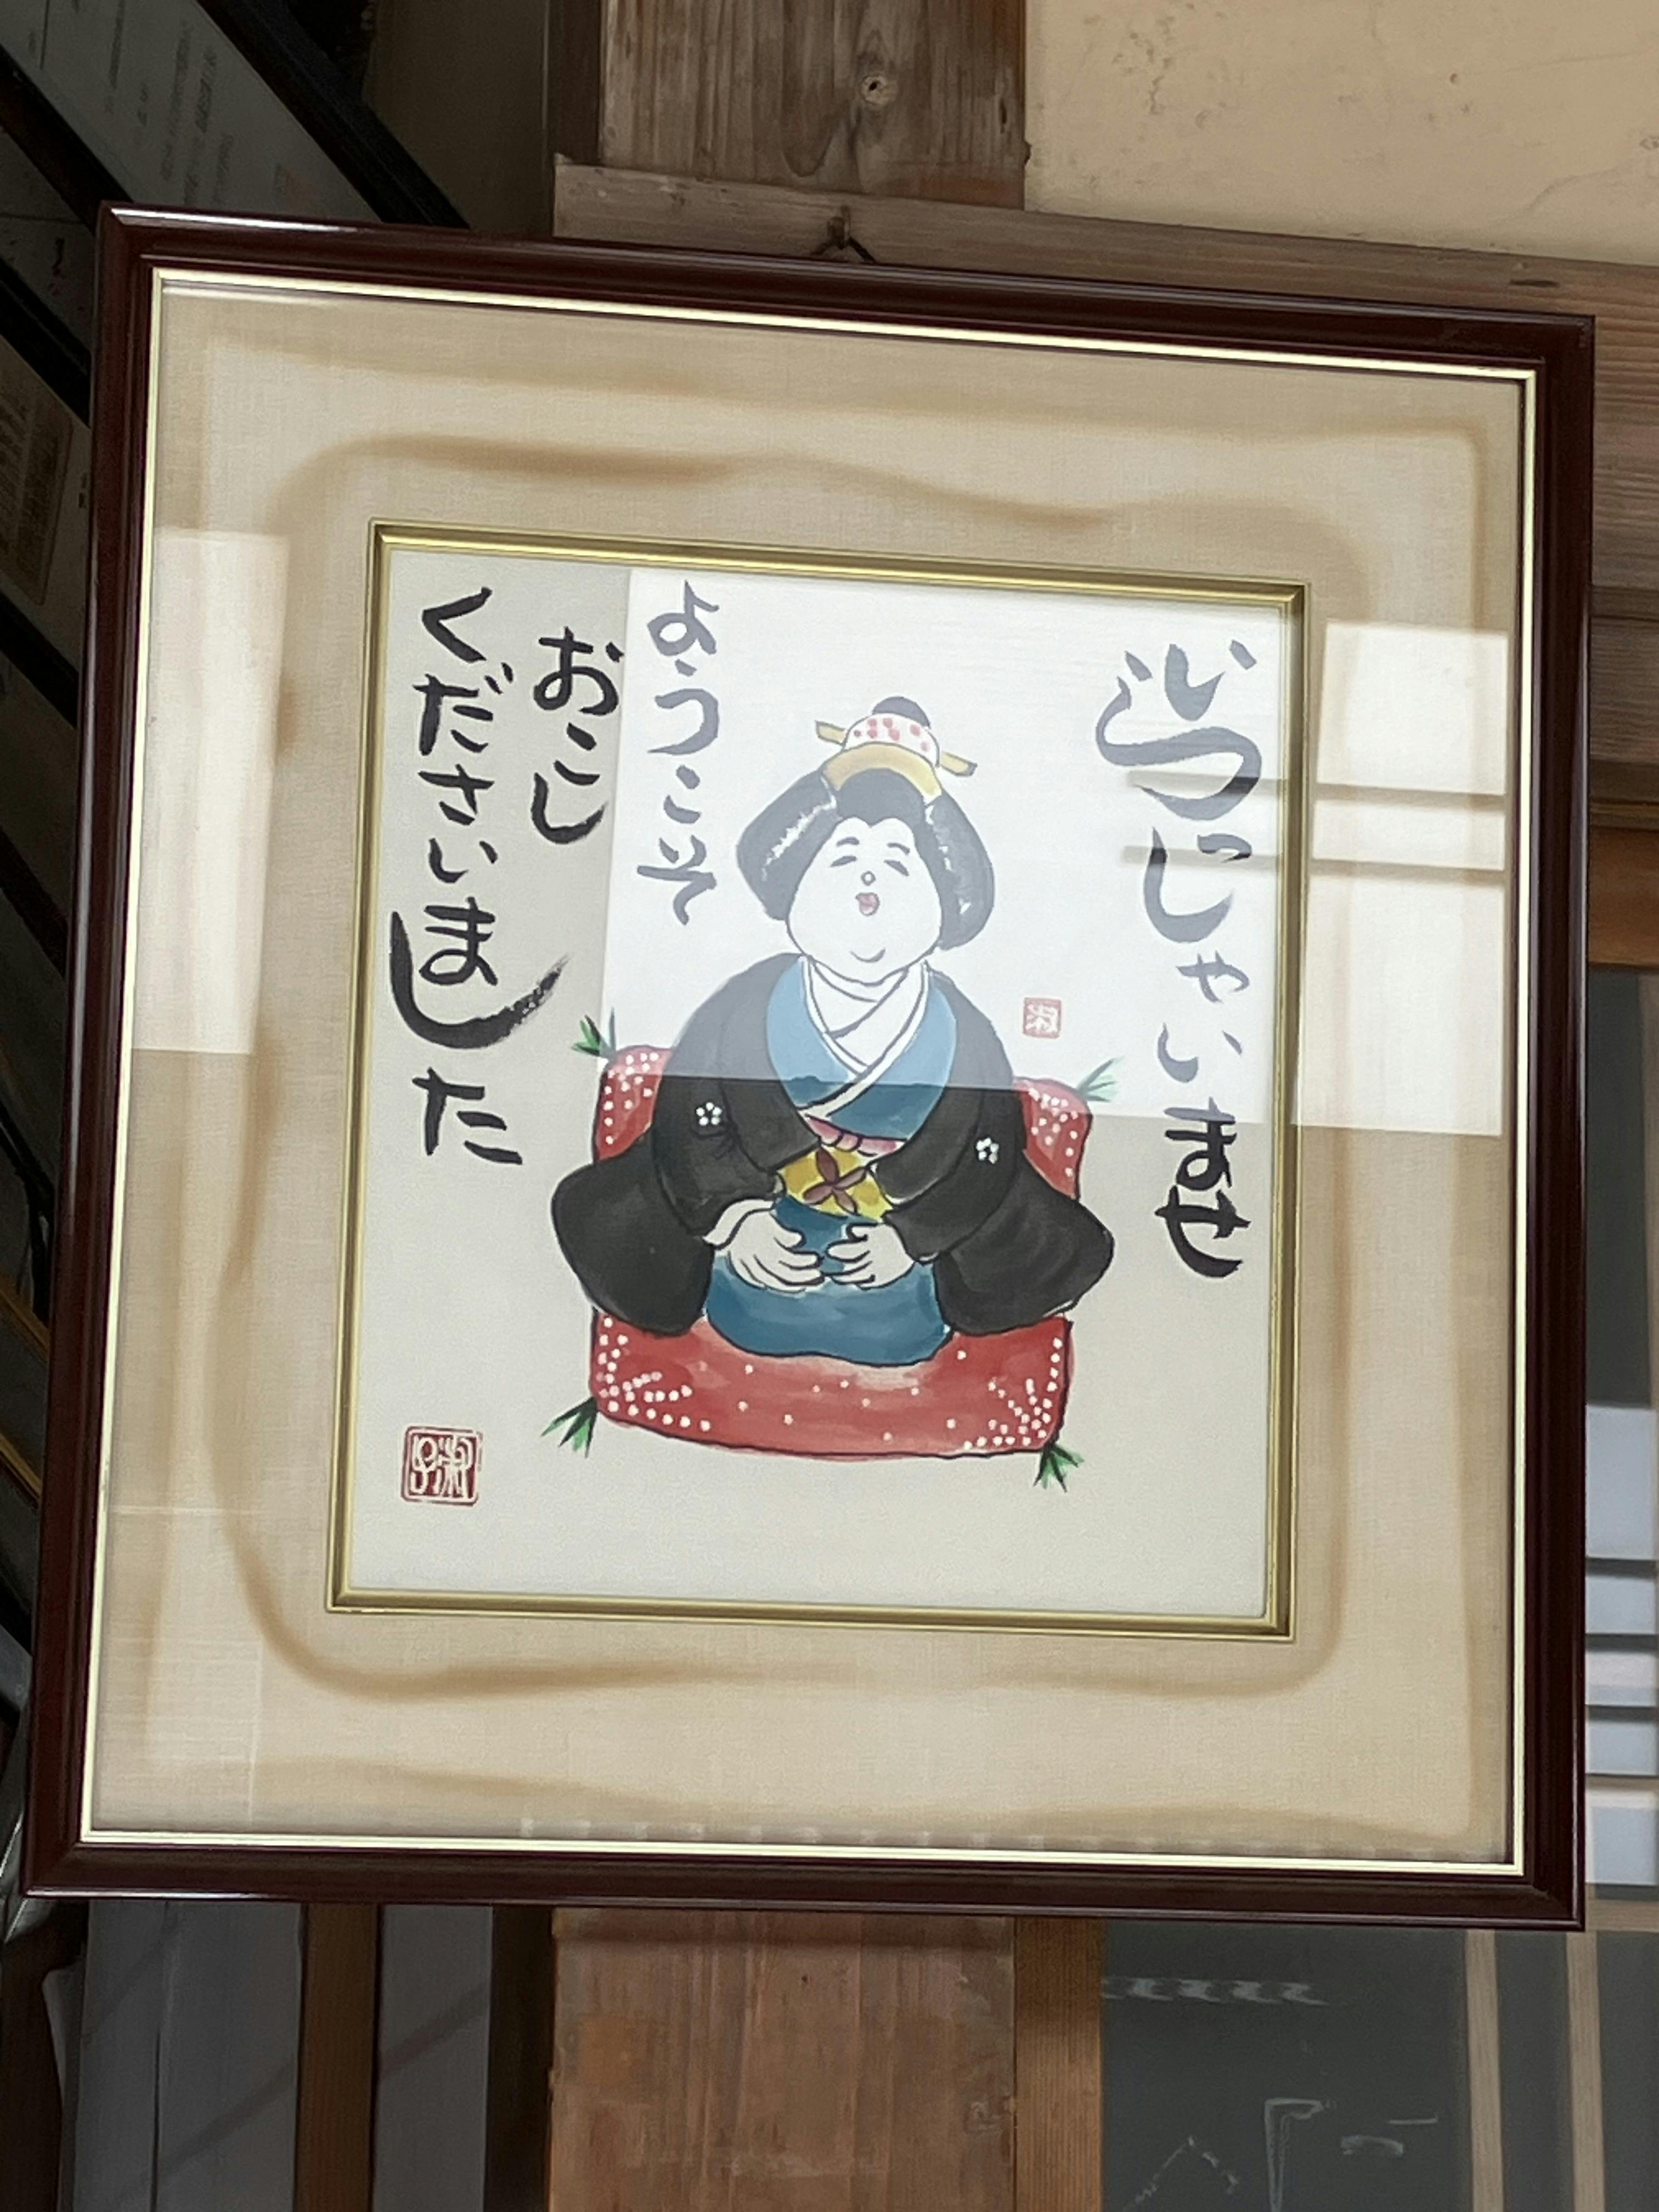 いらっしゃいませ
ようこそ
おこし
くださいました